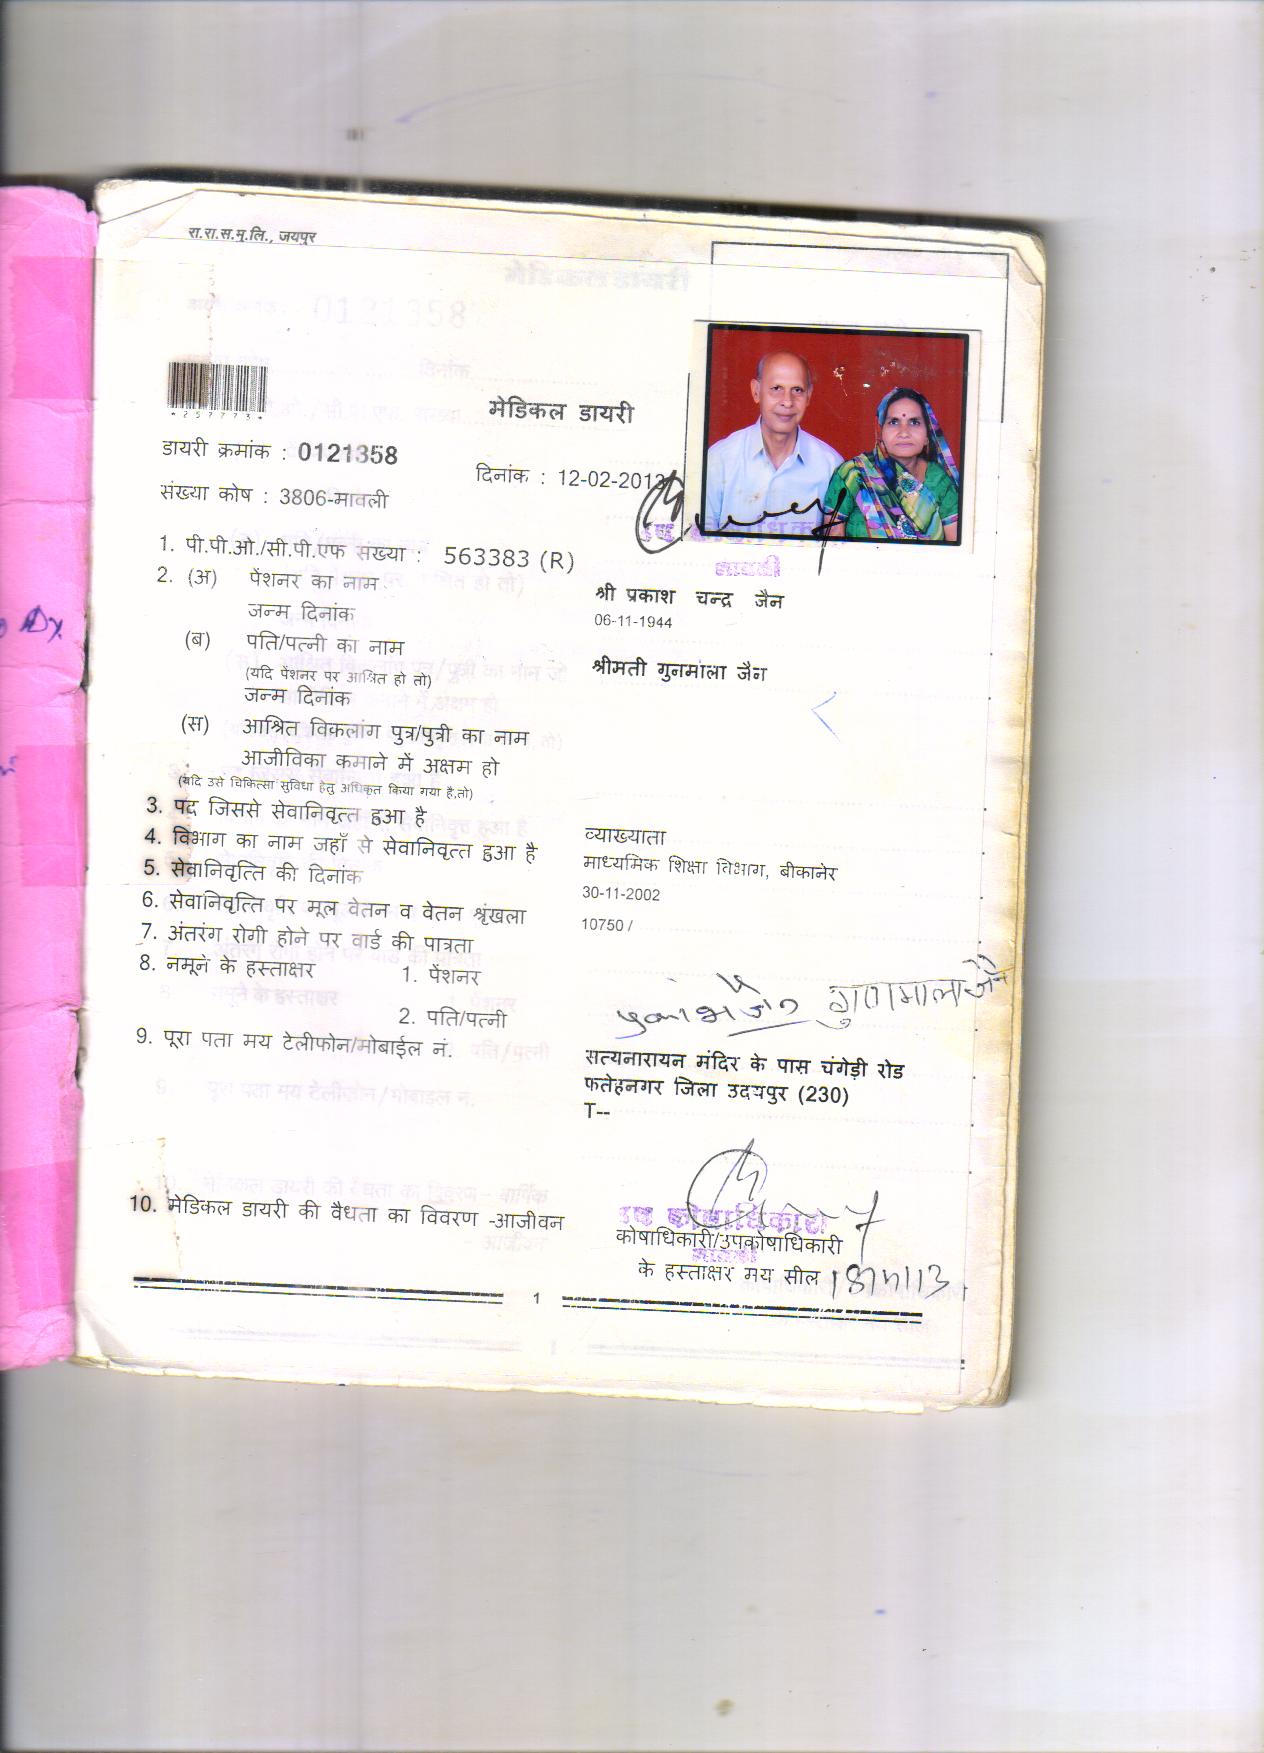 रा.रा.स.मु.लि., जयपुर
*257773*
मेडिकल डायरी
डायरी क्रमांक : 0121358
दिनांक : 12-02-2013
संख्या कोष : 3806-मावली
1. पी.पी.ओ./सी.पी.एफ संख्या : 563383 (R)
2. (अ) पेंशनर का नाम श्री प्रकाश चन्द्र जैन
जन्म दिनांक 06-11-1944
(ब) पति/पत्नी का नाम श्रीमती गुनमाला जैन
(यदि पेंशनर पर आश्रित हो तो)
जन्म दिनांक
(स) आश्रित विकलांग पुत्र/पुत्री का नाम
आजीविका कमाने में अक्षम हो
(यदि उसे चिकित्सा सुविधा हेतु अधिकृत किया गया है,तो)
3. पद जिससे सेवानिवृत्त हुआ है व्याख्याता
4. विभाग का नाम जहाँ से सेवानिवृत्त हुआ है माध्यमिक शिक्षा विभाग, बीकानेर
5. सेवानिवृत्ति की दिनांक 30-11-2002
6. सेवानिवृत्ति पर मूल वेतन व वेतन श्रृंखला 10750 /
7. अंतरंग रोगी होने पर वार्ड की पात्रता
8. नमूने के हस्ताक्षर 1. पेंशनर
गुणमाला जैन
2. पति/पत्नी
9. पूरा पता मय टेलीफोन/मोबाईल नं. सत्यनारायन मंदिर के पास चंगेड़ी रोड
फतेहनगर जिला उदयपुर (230)
T--
10. मेडिकल डायरी की वैधता का विवरण -आजीवन
उप कोषाधिकारी
मावली
कोषाधिकारी/उपकोषाधिकारी
के हस्ताक्षर मय सील
1